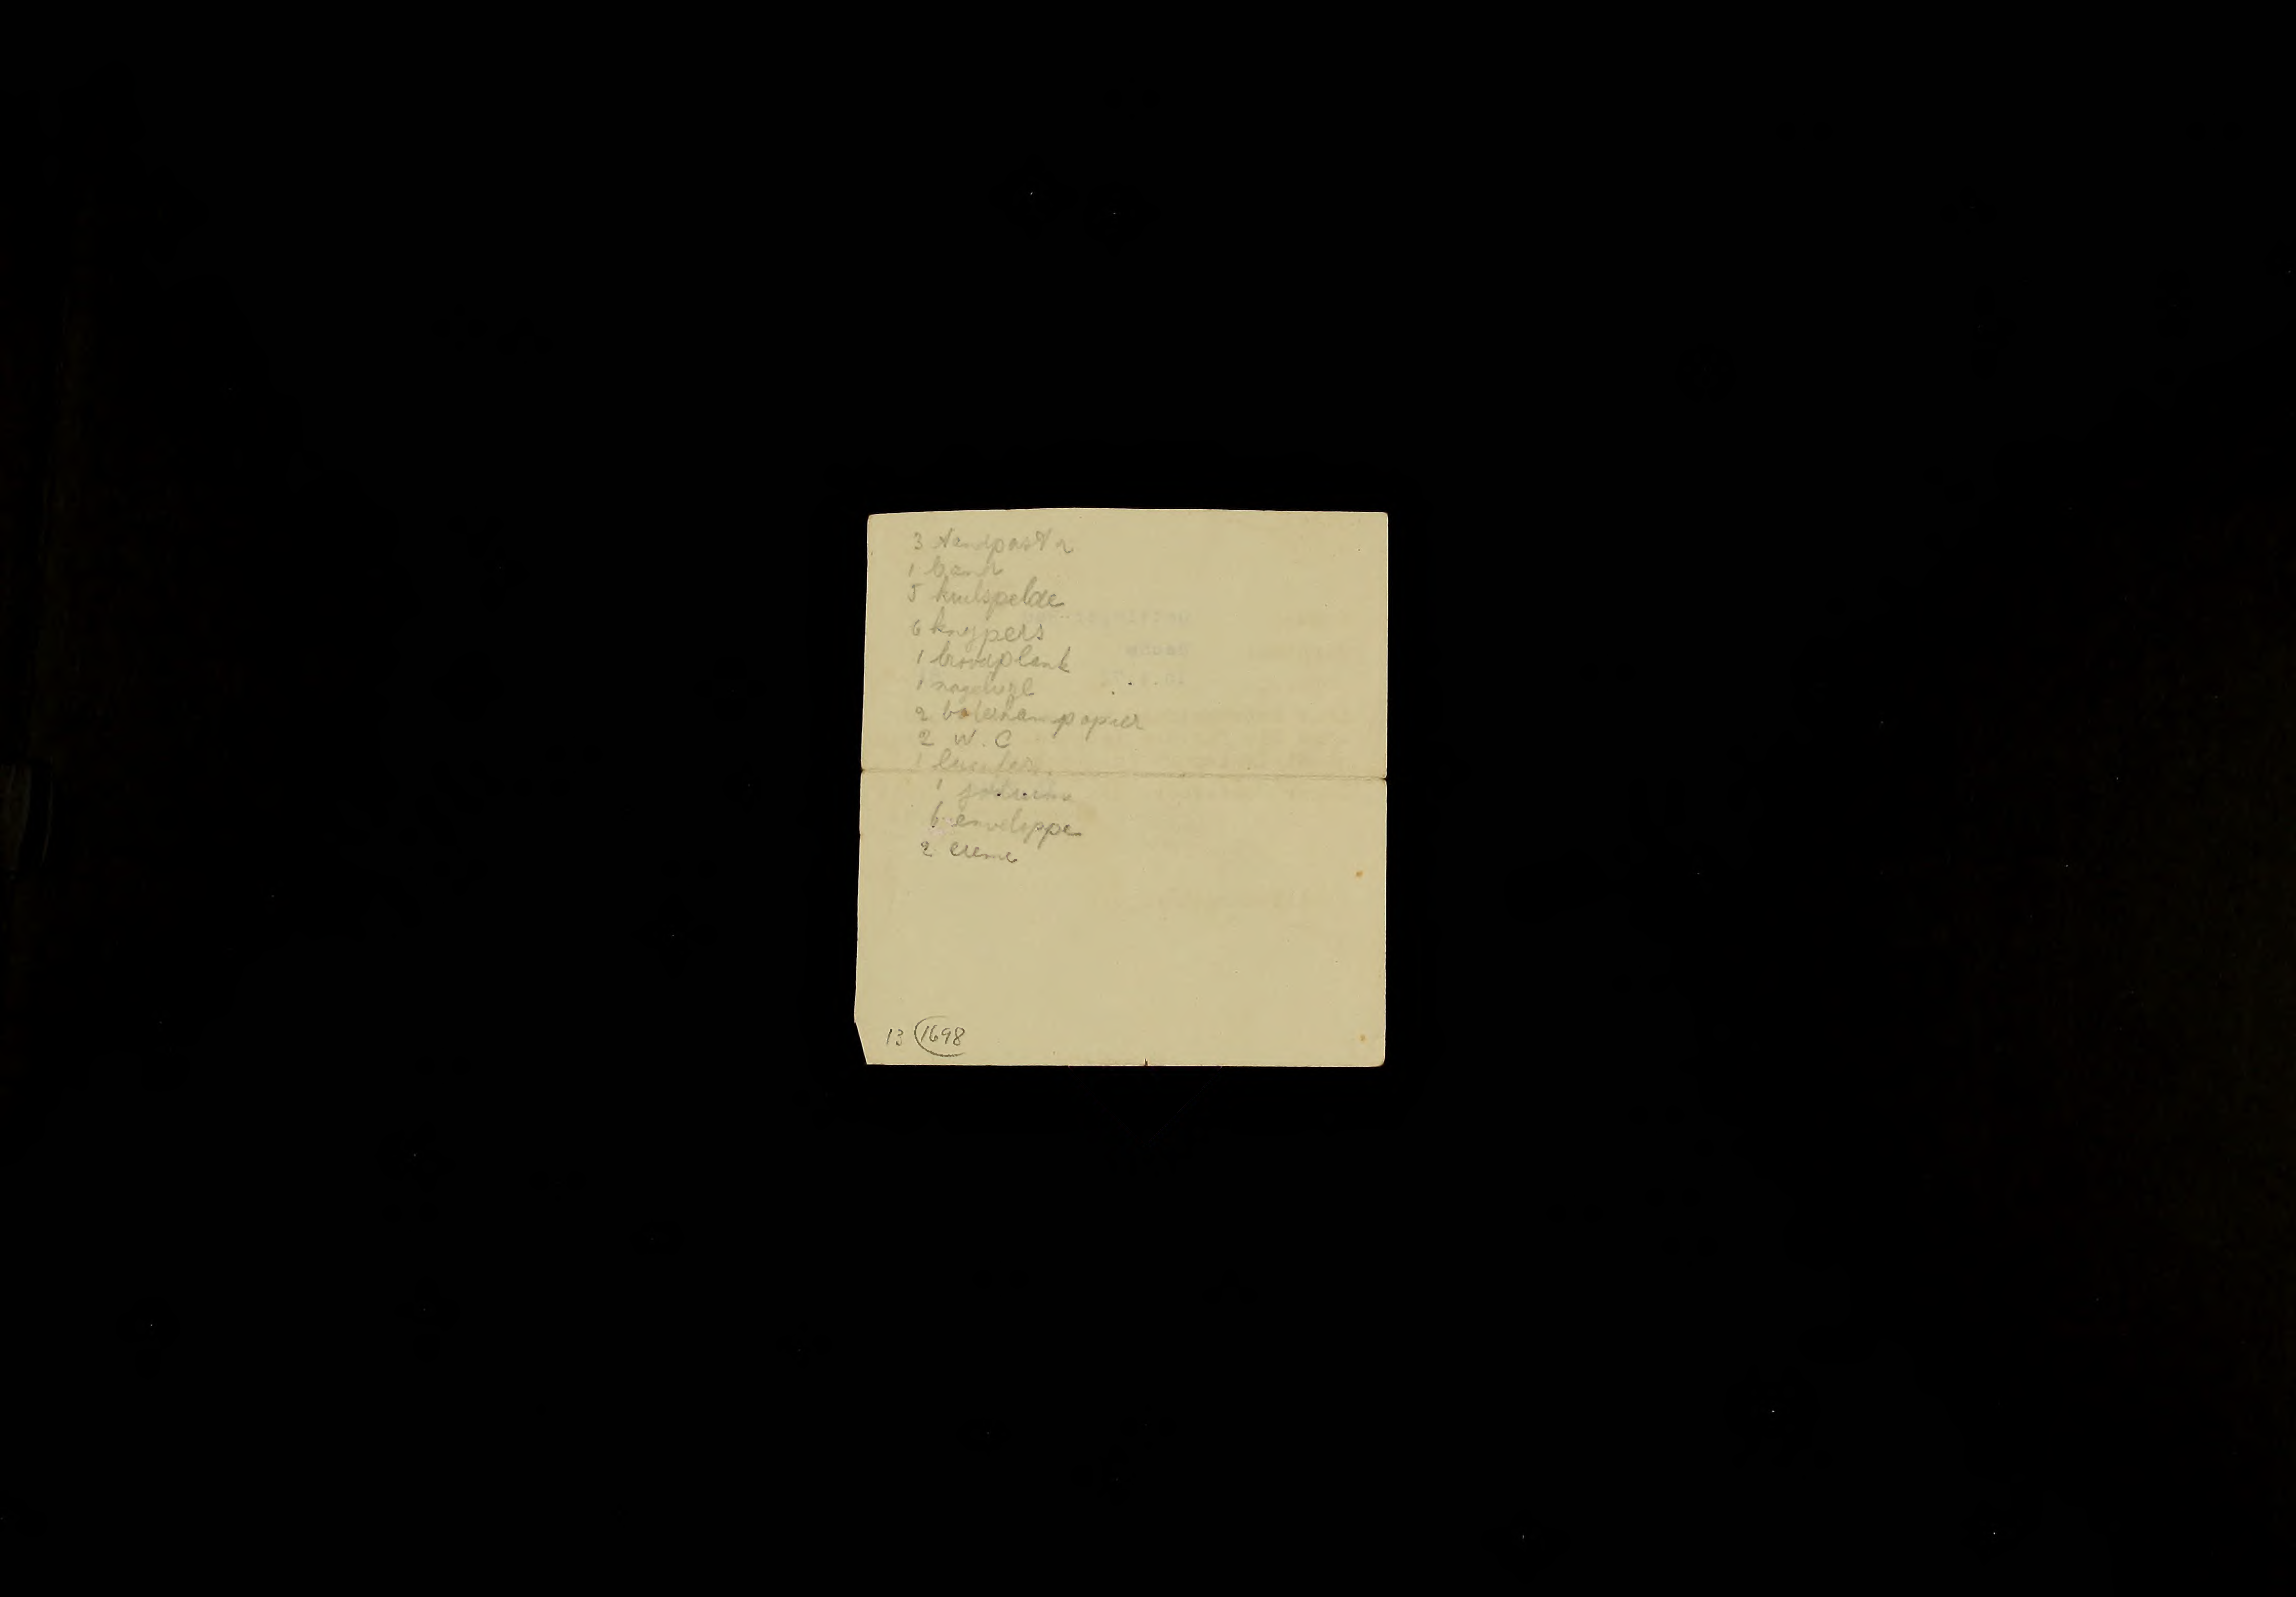 3 tandpasta
1 band
5 knilspelde
6 knypers
1 broodplank
1 nagelvyl
2 boterhampapier
2 W.C
1 lucifers
1
6 enveloppe
2 creme
13 1698